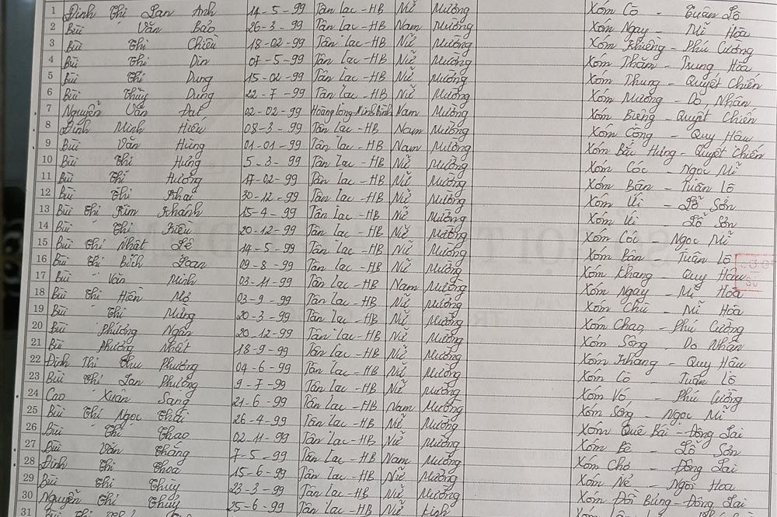 1 Đinh Thị Lan Anh 14-5-99 Tân Lạc-HB Nữ Mường Xóm Cò - Tuân Lộ
2 Bùi Văn Bảo 26-3-99 Tân Lạc-HB Nam Mường Xóm Ngay - Mĩ Hòa
3 Bùi Thị Chiều 18-02-99 Tân Lạc-HB Nữ Mường Xóm - Phú Cường
4 Bùi Thị Din 07-5-99 Tân Lạc-HB Nữ Mường Xóm Thăm - Trung Hòa
5 Bùi Thị Dung 15-02-99 Tân Lạc-HB Nữ Mường Xóm Thung - Quyết Chiến
6 Bùi Thùy Dung 22-7-99 Tân Lạc-HB Nữ Mường Xóm Mương - Do Nhân
7 Nguyễn Văn Đạt 02-02-99 Nam Mường Xóm Biêng - Quyết Chiến
8 Đinh Minh Hiếu 08-3-99 Tân Lạc-HB Nam Mường Xóm Cộng - Quy Hậu
9 Bùi Văn Hùng 01-01-99 Tân Lạc-HB Nam Mường Xóm Bắc Hưng - Quyết Chiến
10 Bùi Thị Hưng 5-3-99 Tân Lạc-HB Nữ Mường Xóm Cóc - Ngọc Mĩ
11 Bùi Thị Hương 17-02-99 Tân Lạc-HB Nữ Mường Xóm Bân - Tuân Lộ
12 Bùi Thị Khai 30-12-99 Tân Lạc-HB Nữ Mường Xóm - Lỗ Sơn
13 Bùi Thị Kim Khánh 15-4-99 Tân Lạc-HB Nữ Mường Xóm - Lỗ Sơn
14 Bùi Thị Kiều 20-12-99 Tân Lạc-HB Nữ Mường Xóm Cóc - Ngọc Mĩ
15 Bùi Thị Nhật Lệ 14-5-99 Tân Lạc-HB Nữ Mường Xóm Bân - Tuân Lộ
16 Bùi Thị Bích Loan 09-8-99 Tân Lạc-HB Nữ Mường Xóm Khang - Quy Hậu
17 Bùi Văn Minh 03-11-99 Tân Lạc-HB Nam Mường Xóm Ngay - Mĩ Hòa
18 Bùi Thị Hiền Mơ 03-9-99 Tân Lạc-HB Nữ Mường Xóm Chù - Mĩ Hòa
19 Bùi Thị Mừng 20-3-99 Tân Lạc-HB Nữ Mường Xóm Chao - Phú Cường
20 Bùi Phương Ngân 20-12-99 Tân Lạc-HB Nữ Mường Xóm Sông - Do Nhân
21 Bùi Phương Nhật 18-9-99 Tân Lạc-HB Nữ Mường Xóm Khang - Quy Hậu
22 Đinh Thị Thu Phương 04-6-99 Tân Lạc-HB Nữ Mường Xóm Cò - Tuân Lộ
23 Bùi Thị Lan Phương 9-7-99 Tân Lạc-HB Nữ Mường Xóm Vó - Phú Cường
24 Cao Xuân Sang 21-6-99 Tân Lạc-HB Nam Mường Xóm Sóng - Ngọc Mĩ
25 Bùi Thị Ngọc 26-4-99 Tân Lạc-HB Nữ Mường Xóm Quê Bái - Đông Lai
26 Bùi Thị Thao 02-11-99 Tân Lạc-HB Nữ Mường Xóm Bệ - Lỗ Sơn
27 Bùi Văn Thắng 7-5-99 Tân Lạc-HB Nam Mường Xóm Chó - Đông Lai
28 Đinh Thị Thoa 15-6-99 Tân Lạc-HB Nữ Mường Xóm Nẻ - Ngòi Hoa
29 Bùi Thị Thúy 23-3-99 Tân Lạc-HB Nữ Mường Xóm Đồi Bưng - Đông Lai
30 Nguyễn Thị Thúy 25-6-99 Tân Lạc-HB Nữ Kinh
31 Bùi Thị